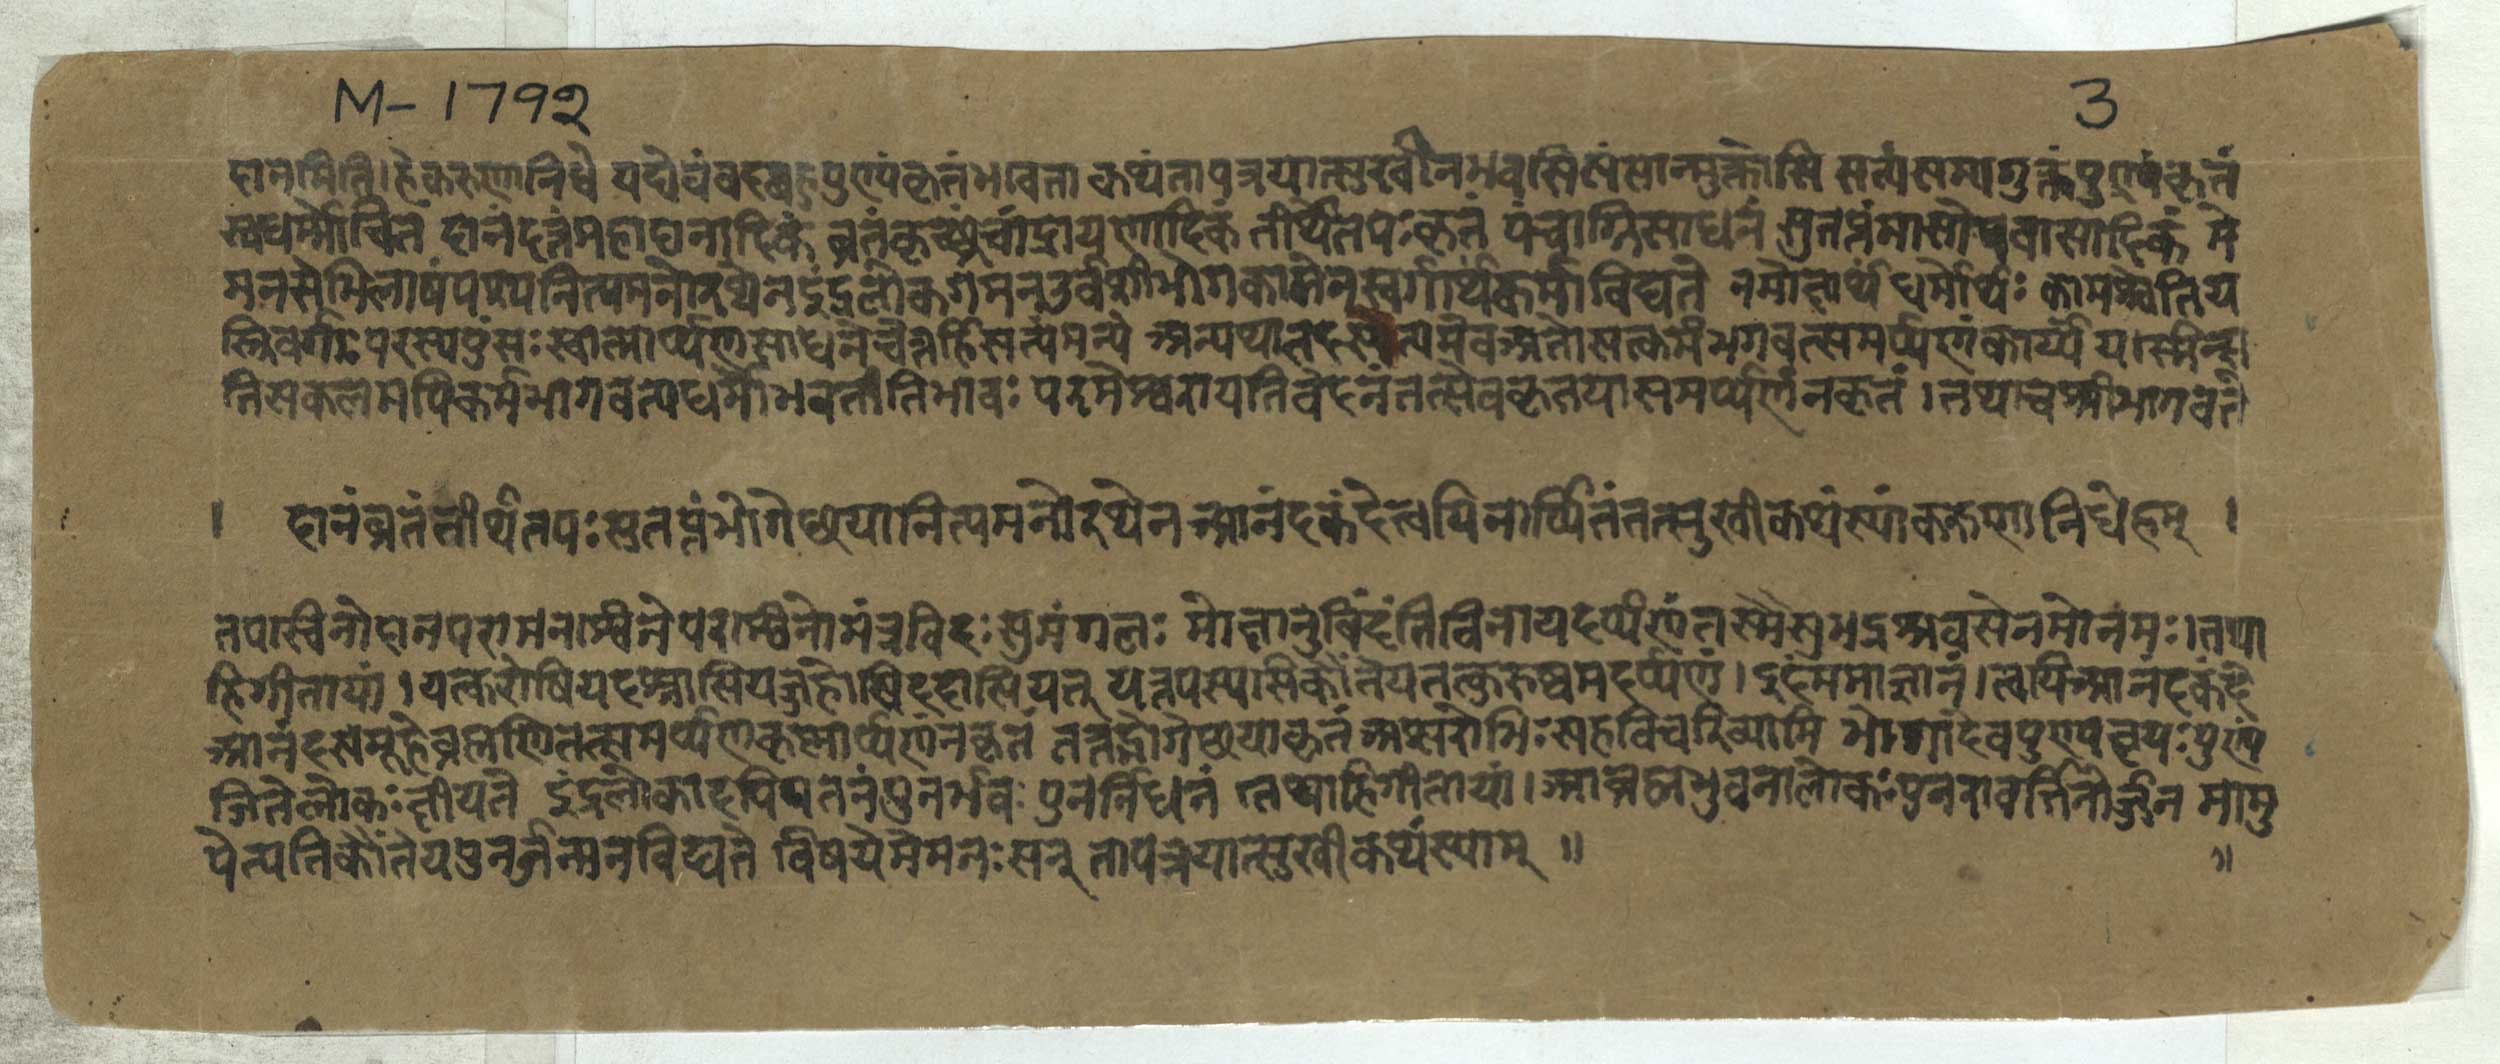 M-1792 3
दानमिति। हेकरुणानिधे यद्येवंवदत्बहुपुण्यंकृतंभवता कथंतापत्रयात्सुखीनभवसिसंसान्मुक्तोसि सत्यंसम्यगुक्तंपुण्यंकृतं
स्वधर्मोचितं दानंदत्तंमहादानादिकं व्रतंकृच्छ्रचांद्रायणादिकं तीर्थेतपःकृतं पंचाग्निसाधनं सुतप्तंमासोपवासादिकं मे
मनसेभिलाषं नित्यमनोरथेनइंद्रलोकगमनउर्वशीभोगकामेनस्वर्गार्थंकर्माविद्यते नमोक्षार्थं धर्मार्थः कामश्चेतिय
स्त्रिवर्गः परस्यपुंसः स्वात्मार्प्पणसाधनंचेत्तर्हिसत्यंमन्ये अन्यथा भगवत्समर्प्पणंकार्य्यं यस्मिन्कृ
तिसकलमपिकर्मभागवत्यधर्मोभवतीतिभावः परमेश्वरायनिवेदनंतत्सेवकृतयासमर्प्पणंनकृतं। तथाचश्रीभागवते
। दानंव्रतंतीर्थतपःसुतप्तंभोगेछयानित्यमनोरथेन आनंदकंदेत्वयिनार्प्पितंतत्सुखीकथंस्यांकरुणानिधेहम् ।
तपस्विनोदानपरामनस्विनेपरास्विनोमंत्रविदःसुमंगलाः क्षेमंनविंदंतिविनायदर्प्पणंतस्मैसुभद्रश्रवसेनमोनमः। तथा
हिगीतायां। यत्करोषियदश्नासियज्जुहोसिददासियत् यत्तपस्यसिकौंतेयतत्कुरुष्वमदर्प्पणं। इदंममाज्ञानं। त्वयिआनंदकंदे
आनंदसमूहेब्रह्मणितत्समर्प्पणकृष्णार्प्पणंनकृतं तत्तद्भोगेछयाकृतंअप्सरोभिःसहविचरिष्यामि भोगादेवपुण्यक्षयःपुण्य
जितेलोकःक्षीयते इंद्रलोकादपिपतनंपुनर्भवः पुनर्निधनं तथाहिगीतायां। आब्रह्मभुवनालोकाःपुनरावर्त्तिनोर्जुन मामु
पेत्यतिकौंतेयपुनर्जन्मनविद्यते विषयेमेमनःसन् तापत्रयात्सुखीकथंस्याम् ॥ ॥